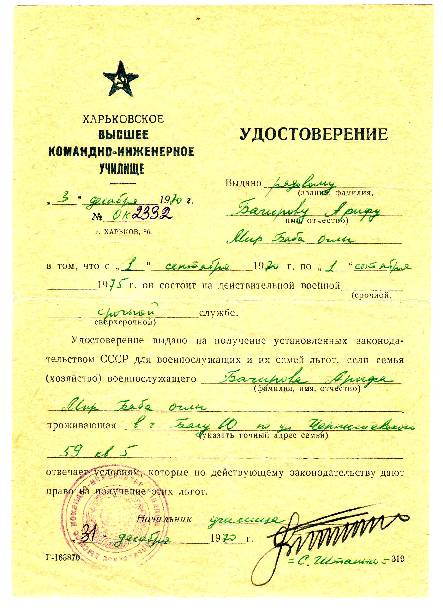 ХАРЬКОВСКОЕ
ВЫСШЕЕ
КОМАНДНО-ИНЖЕНЕРНОЕ
УЧИЛИЩЕ
„3“ декабря 1970 г.
№ ОК 2332
г. ХАРЬКОВ,
УДОСТОВЕРЕНИЕ
Выдано рядовому
(звание, фамилия,
Багирову Арифу
имя, отчество)
Мир Баба оглы
в том, что с „1“ сентября 1970 г. по „1“ сентября
1975 г. он состоит на действительной военной
(срочной,
срочной службе.
сверхсрочной)
Удостоверение выдано на получение установленных законода-
тельством СССР для военнослужащих и их семей льгот, если семья
(хозяйство) военнослужащего Багирова Арифа
(фамилия, имя, отчество)
Мир Баба оглы
проживающая в г Баку 10 по ул Чернышевского
(указать точный адрес семьи)
59 кв 5
отвечает условиям, которые по действующему законодательству дают
право на получение этих льгот.
Начальник училища
31 декабря 1970 г.
Г-163870